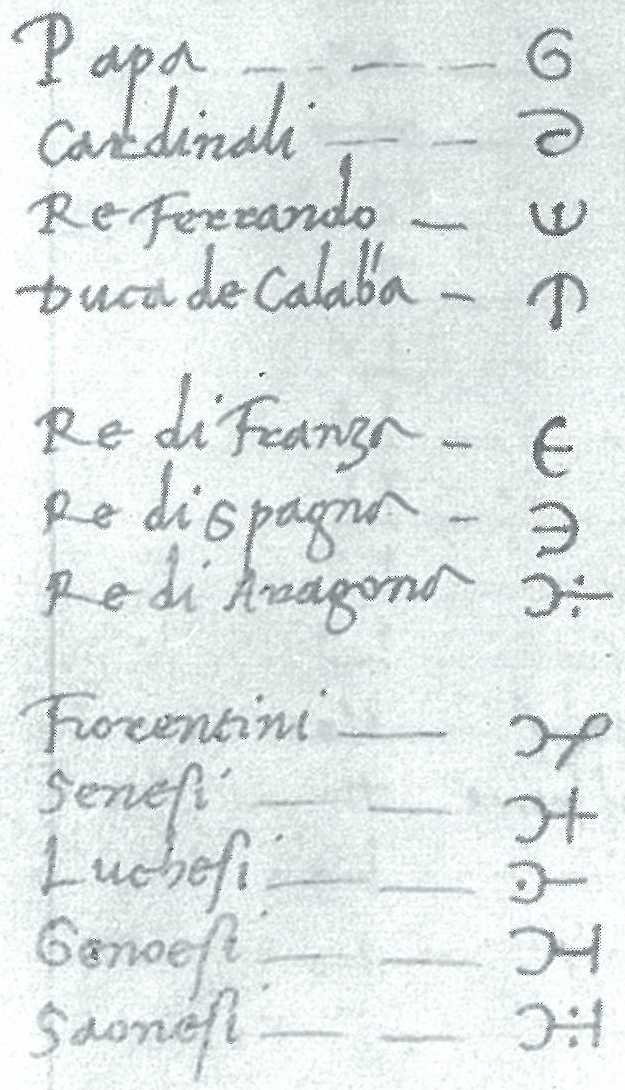 Papa
Cardinali
Re Ferrando
Duca de Calab'a
Re di Franza
Re di Spagna
Re di Aragona
Fiorentini
Senesi
Luchesi
Genoesi
Saonesi